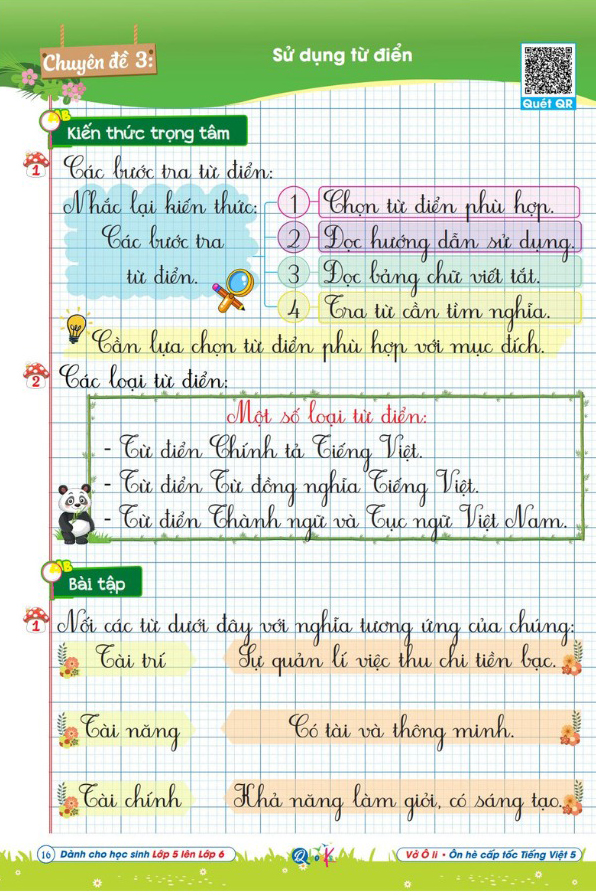 Chuyên đề 3:
Sử dụng từ điển
Quét QR
Kiến thức trọng tâm
1 Các bước tra từ điển:
Nhắc lại kiến thức:
Các bước tra
từ điển.
1 Chọn từ điển phù hợp.
2 Đọc hướng dẫn sử dụng.
3 Đọc bảng chữ viết tắt.
4 Tra từ cần tìm nghĩa.
Cần lựa chọn từ điển phù hợp với mục đích.
2 Các loại từ điển:
Một số loại từ điển:
- Từ điển Chính tả Tiếng Việt.
- Từ điển Từ đồng nghĩa Tiếng Việt.
- Từ điển Thành ngữ và Tục ngữ Việt Nam.
Bài tập
1 Nối các từ dưới đây với nghĩa tương ứng của chúng:
Tài trí Sự quản lí việc thu chi tiền bạc.
Tài năng Có tài và thông minh.
Tài chính Khả năng làm giỏi, có sáng tạo.
16 Dành cho học sinh Lớp 5 lên Lớp 6
Vở Ô li • Ôn hè cấp tốc Tiếng Việt 5